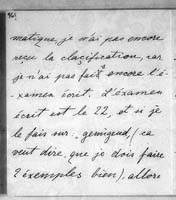 matique, je n'ai pas encore
reçu la clacification, car
je n'ai pas fait encore l'é-
xamen écrit. L'éxamen
écrit est le 22, et si je
le fais sur: gemigend, (ca
veut dire, que je dois faire
2 éxemples bien), allors